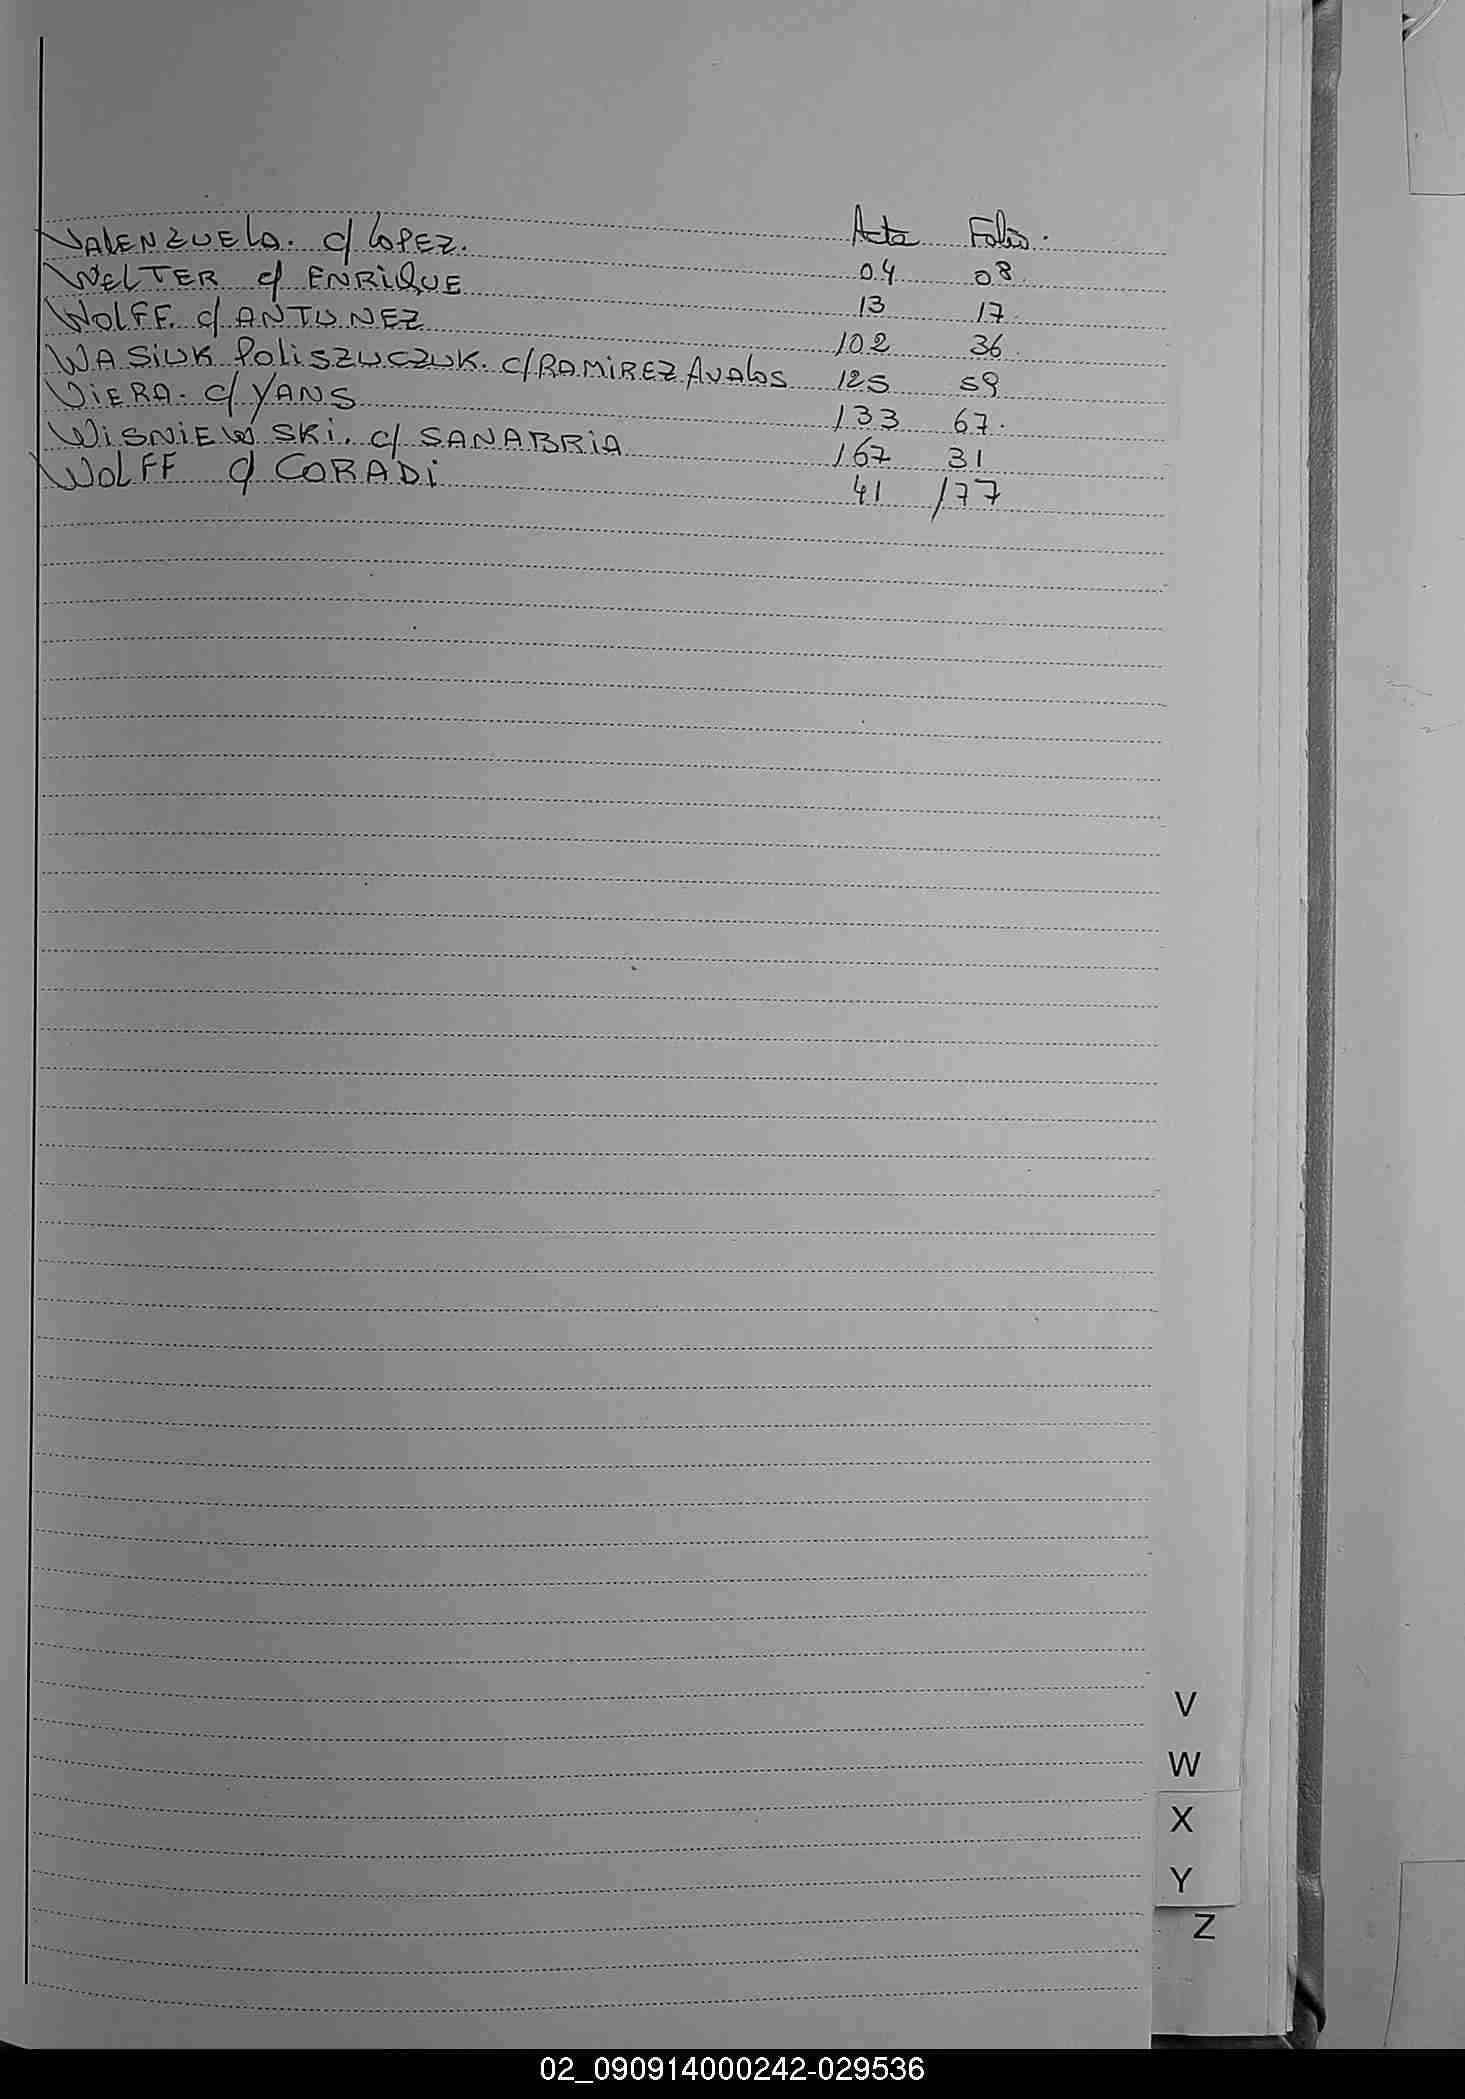 Acta Folio.
VALENZUELA. c/ LOPEZ. 04 08
WELTER c/ ENRIQUE 13 17.
WOLFF. c/ ANTUNEZ 102 36.
WASIUK POLISZUCZUK. c/ RAMIREZ AVALOS 125 59
VIERA. c/ YANS 133 67.
WISNIEWSKI. c/ SANABRIA 167 31
WOLFF c/ CORADI 41 177
V
W
X
Y
Z
02_090914000242-029536